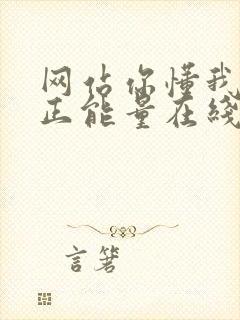 网站你懂我
正能量在线
言箸